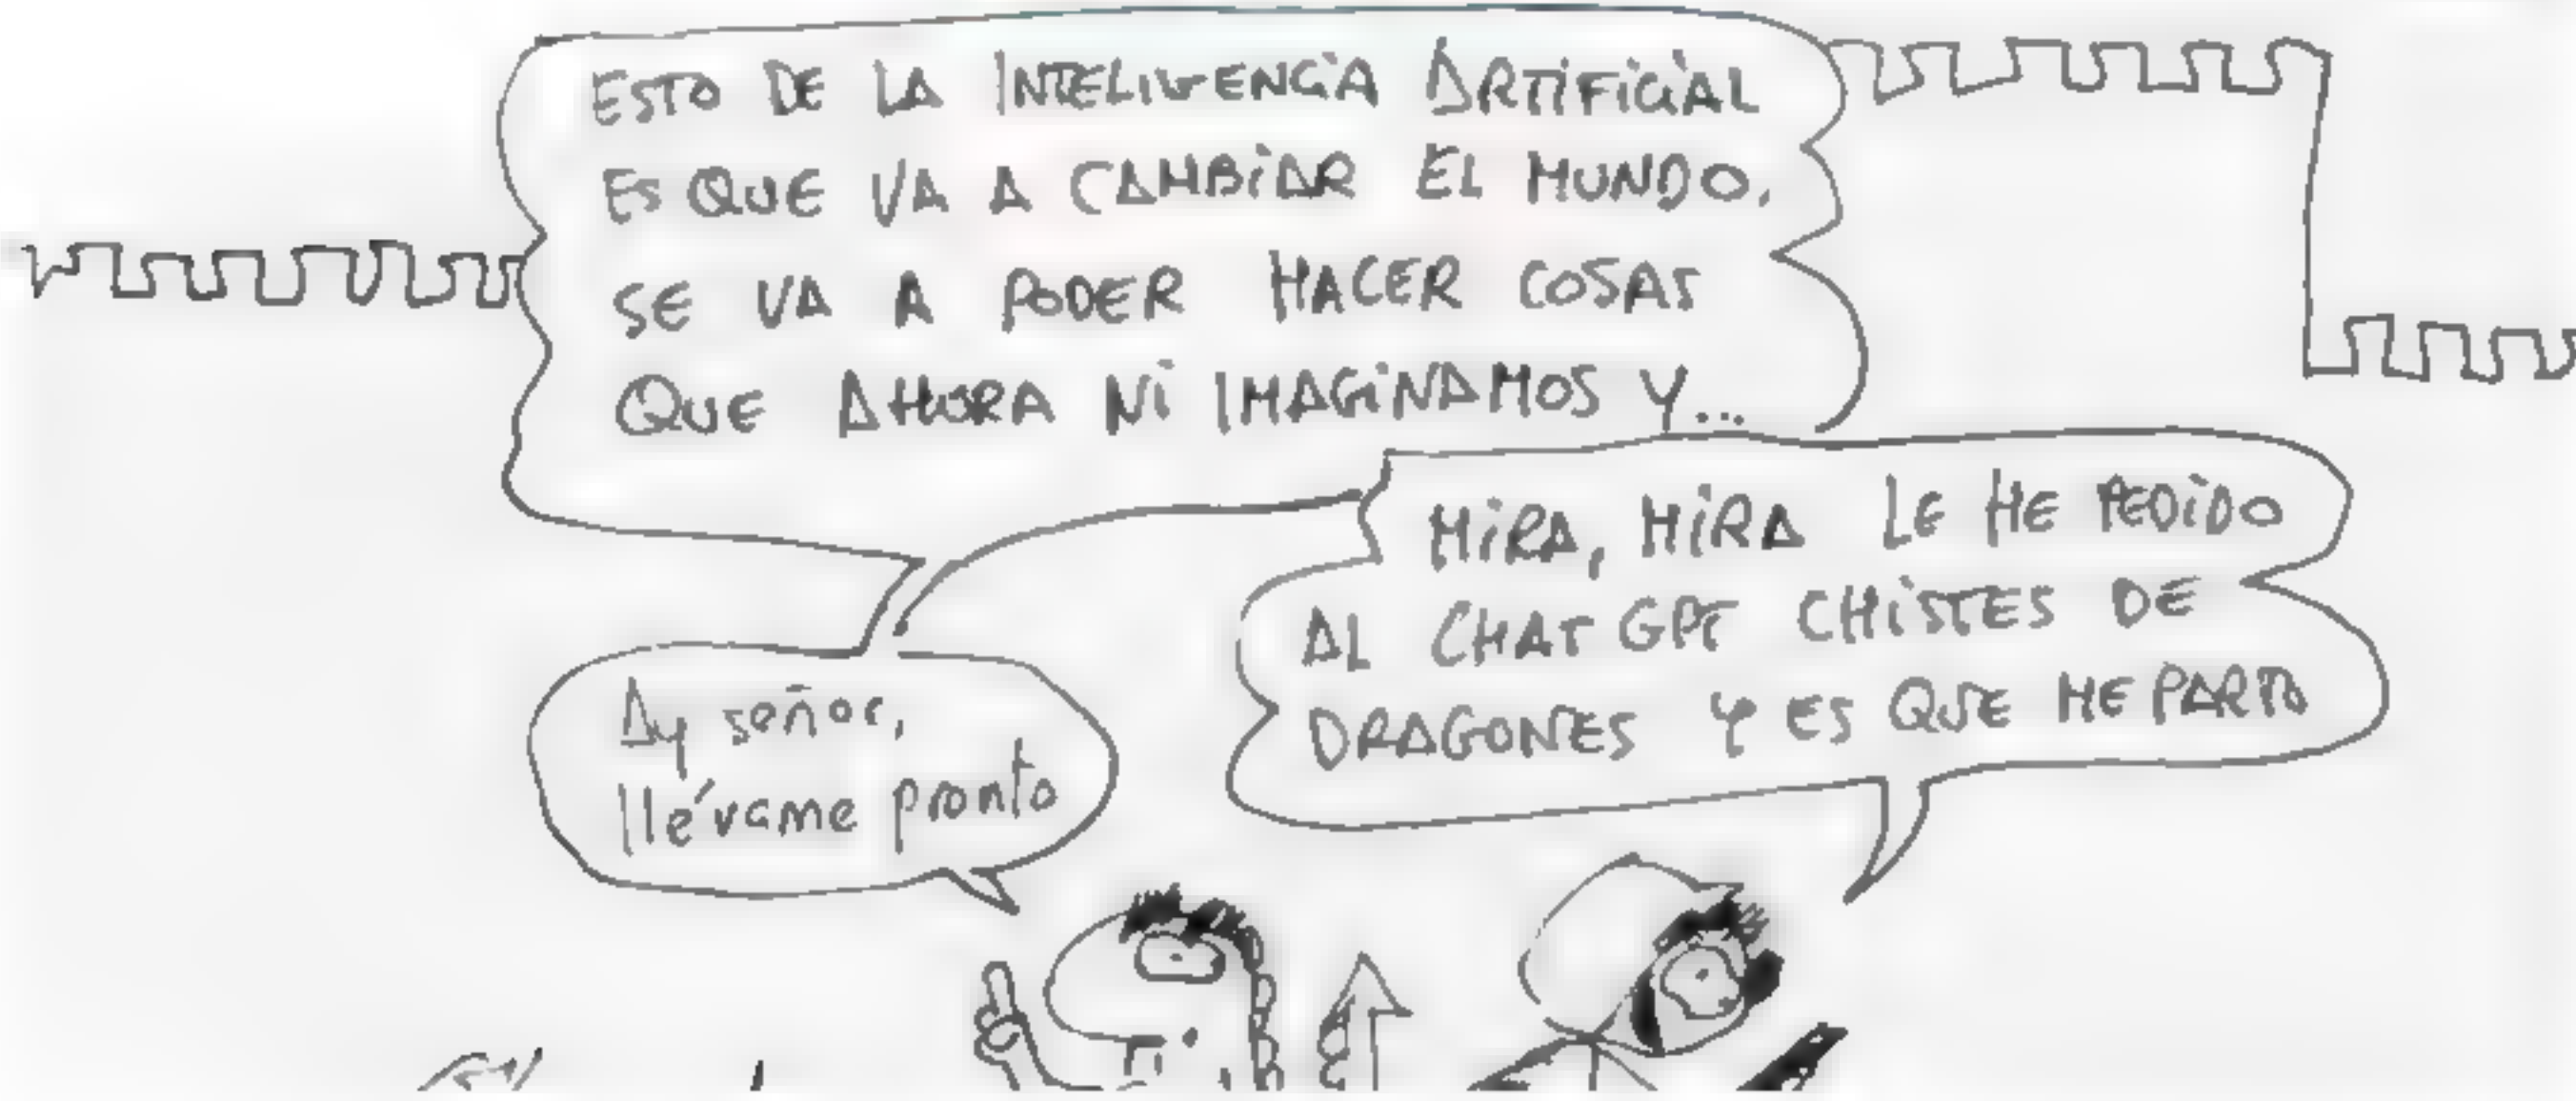 ESTO DE LA INTELIGENCIA ARTIFICIAL
ES QUE VA A CAMBIAR EL MUNDO.
SE VA A PODER HACER COSAS
QUE AHORA NI IMAGINAMOS Y...
MIRA, MIRA LE HE PEDIDO
AL CHAT GPT CHISTES DE
DRAGONES Y ES QUE ME PARTO
Ay señor,
llévame pronto